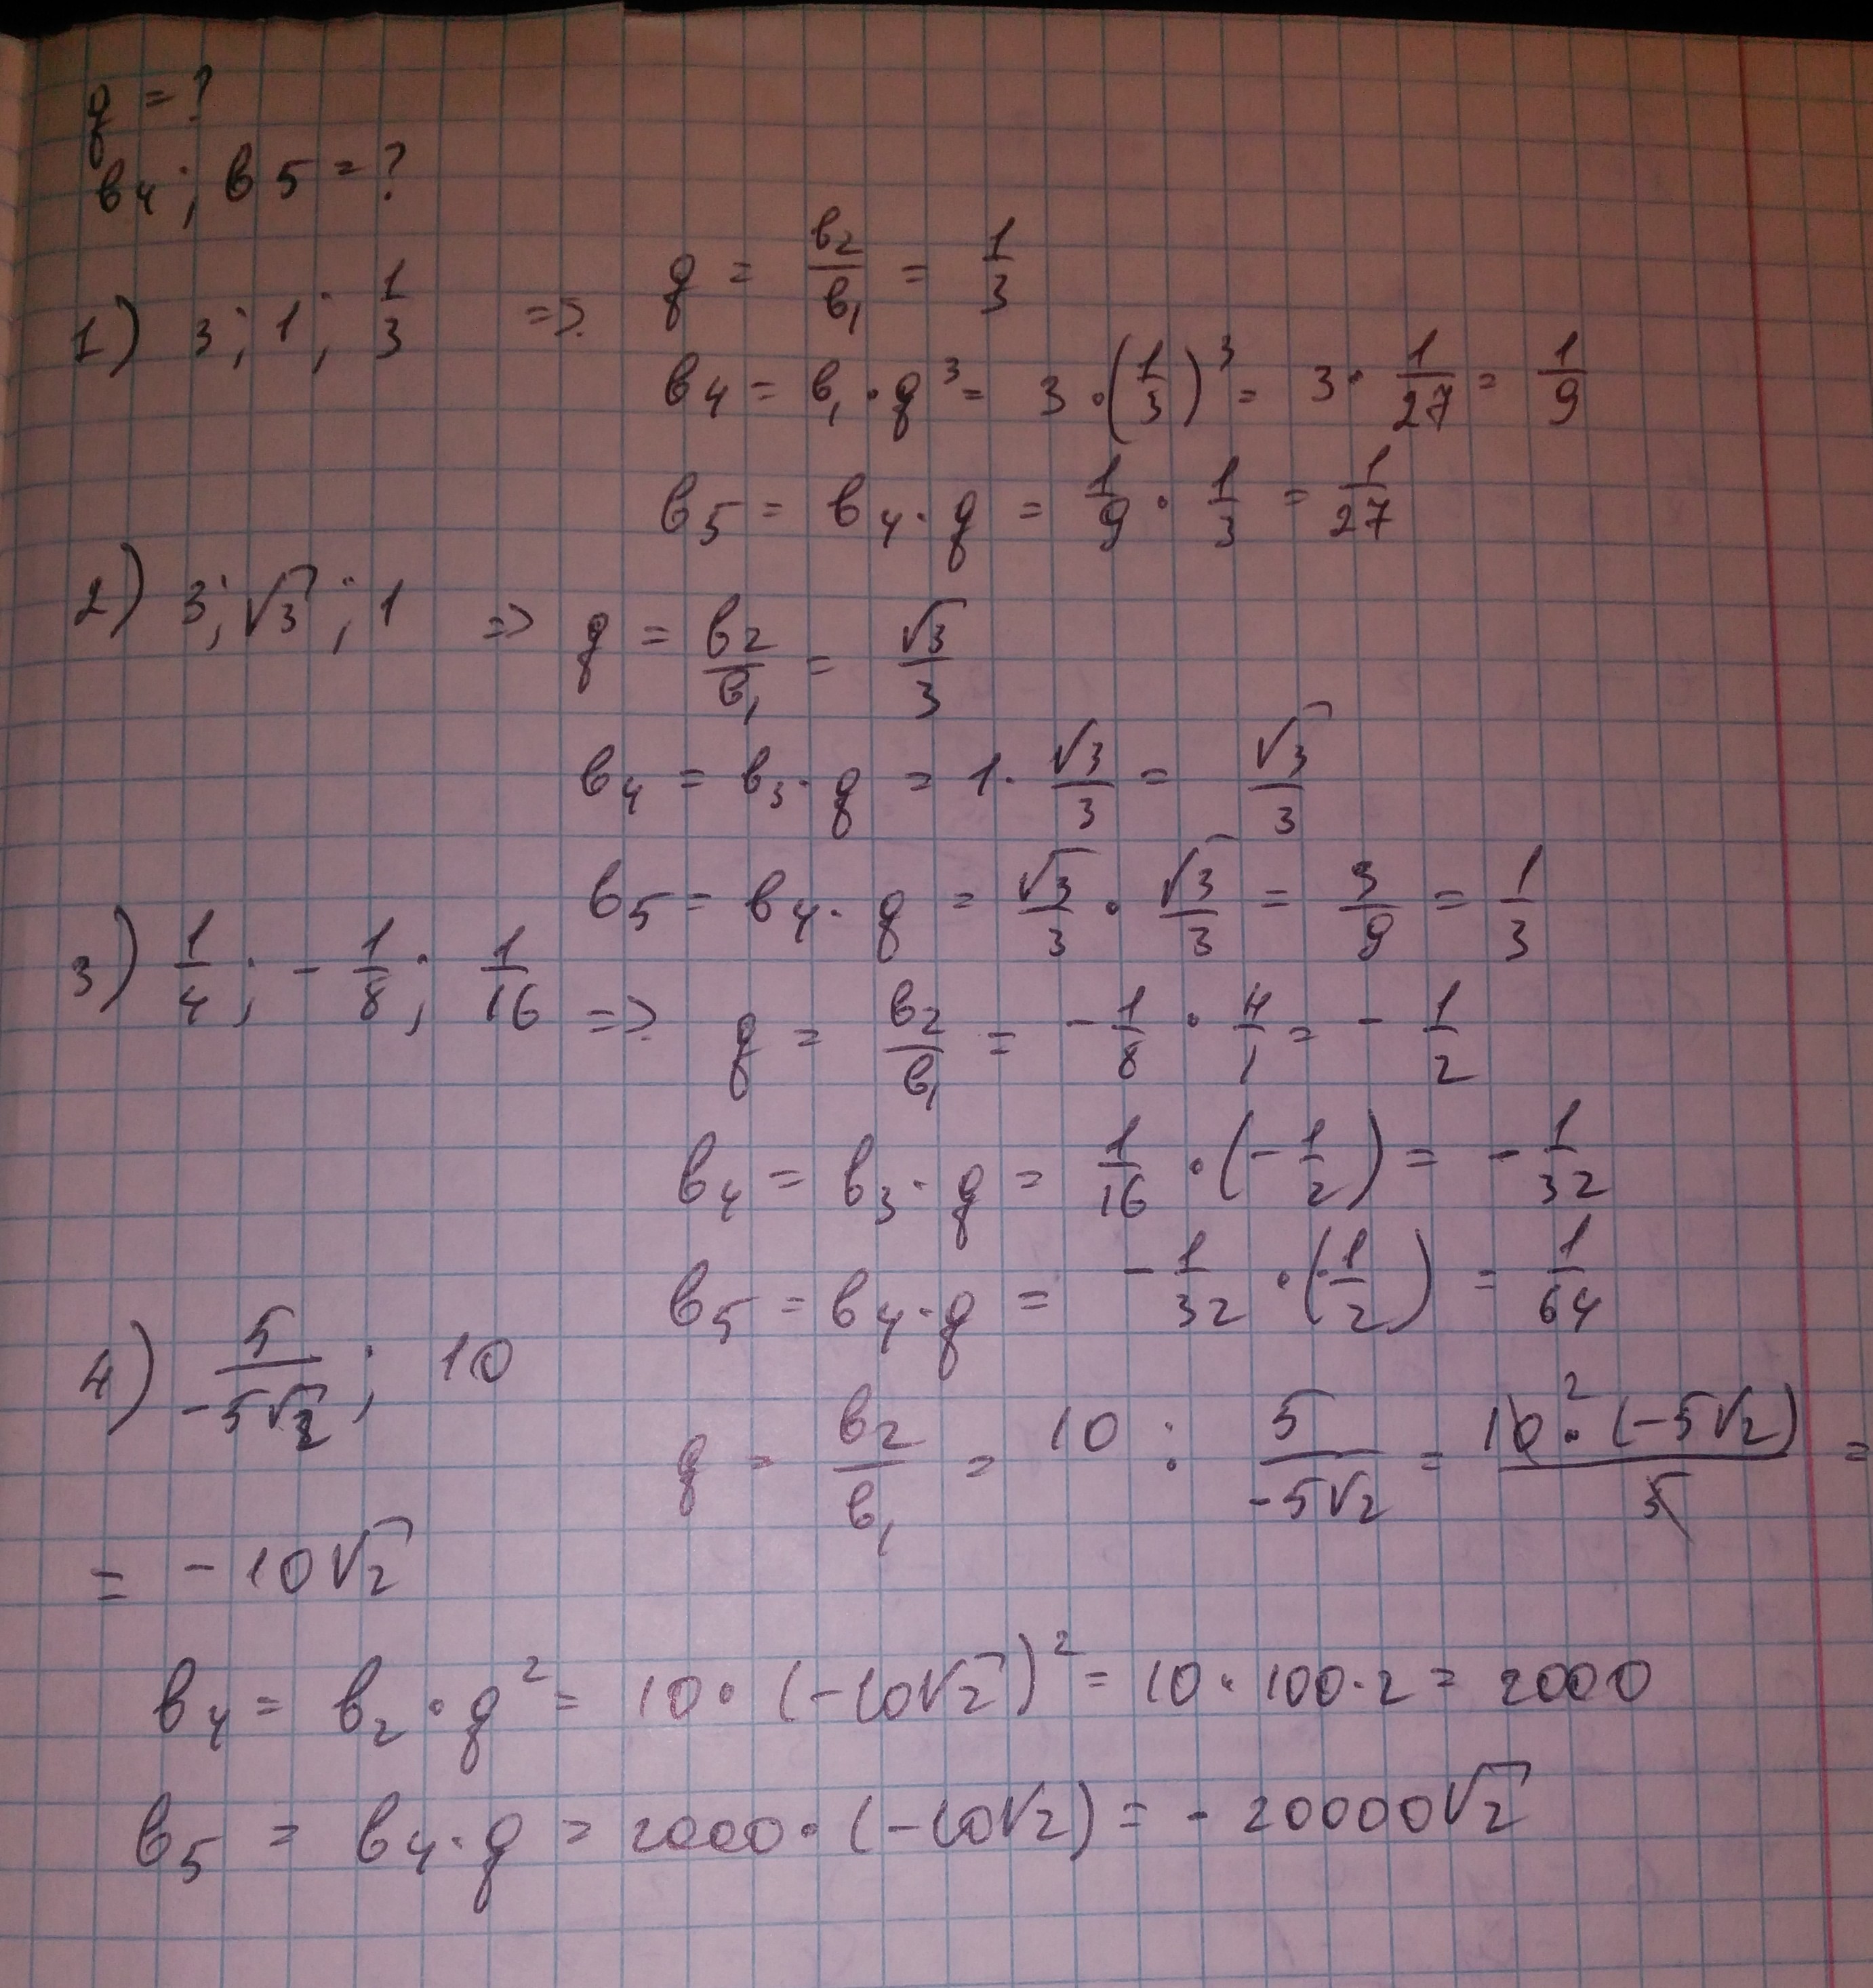 q = ?
b4; b5 = ?
1) 3; 1; 1/3 => q = b2/b1 = 1/3
b4 = b1 · q^3 = 3 · (1/3)^3 = 3 · 1/27 = 1/9
b5 = b4 · q = 1/9 · 1/3 = 1/27
2) 3; √3; 1 => q = b2/b1 = √3/3
b4 = b3 · q = 1 · √3/3 = √3/3
b5 = b4 · q = √3/3 · √3/3 = 3/9 = 1/3
3) 1/4; -1/8; 1/16 => q = b2/b1 = -1/8 · 4/1 = -1/2
b4 = b3 · q = 1/16 · (-1/2) = -1/32
b5 = b4 · q = -1/32 · (-1/2) = 1/64
4) 5/-5√2; 10
q = b2/b1 = 10 : 5/-5√2 = 10^2 · (-5√2)/5 =
= -10√2
b4 = b2 · q^2 = 10 · (-10√2)^2 = 10 · 100 · 2 = 2000
b5 = b4 · q = 2000 · (-10√2) = -20000√2